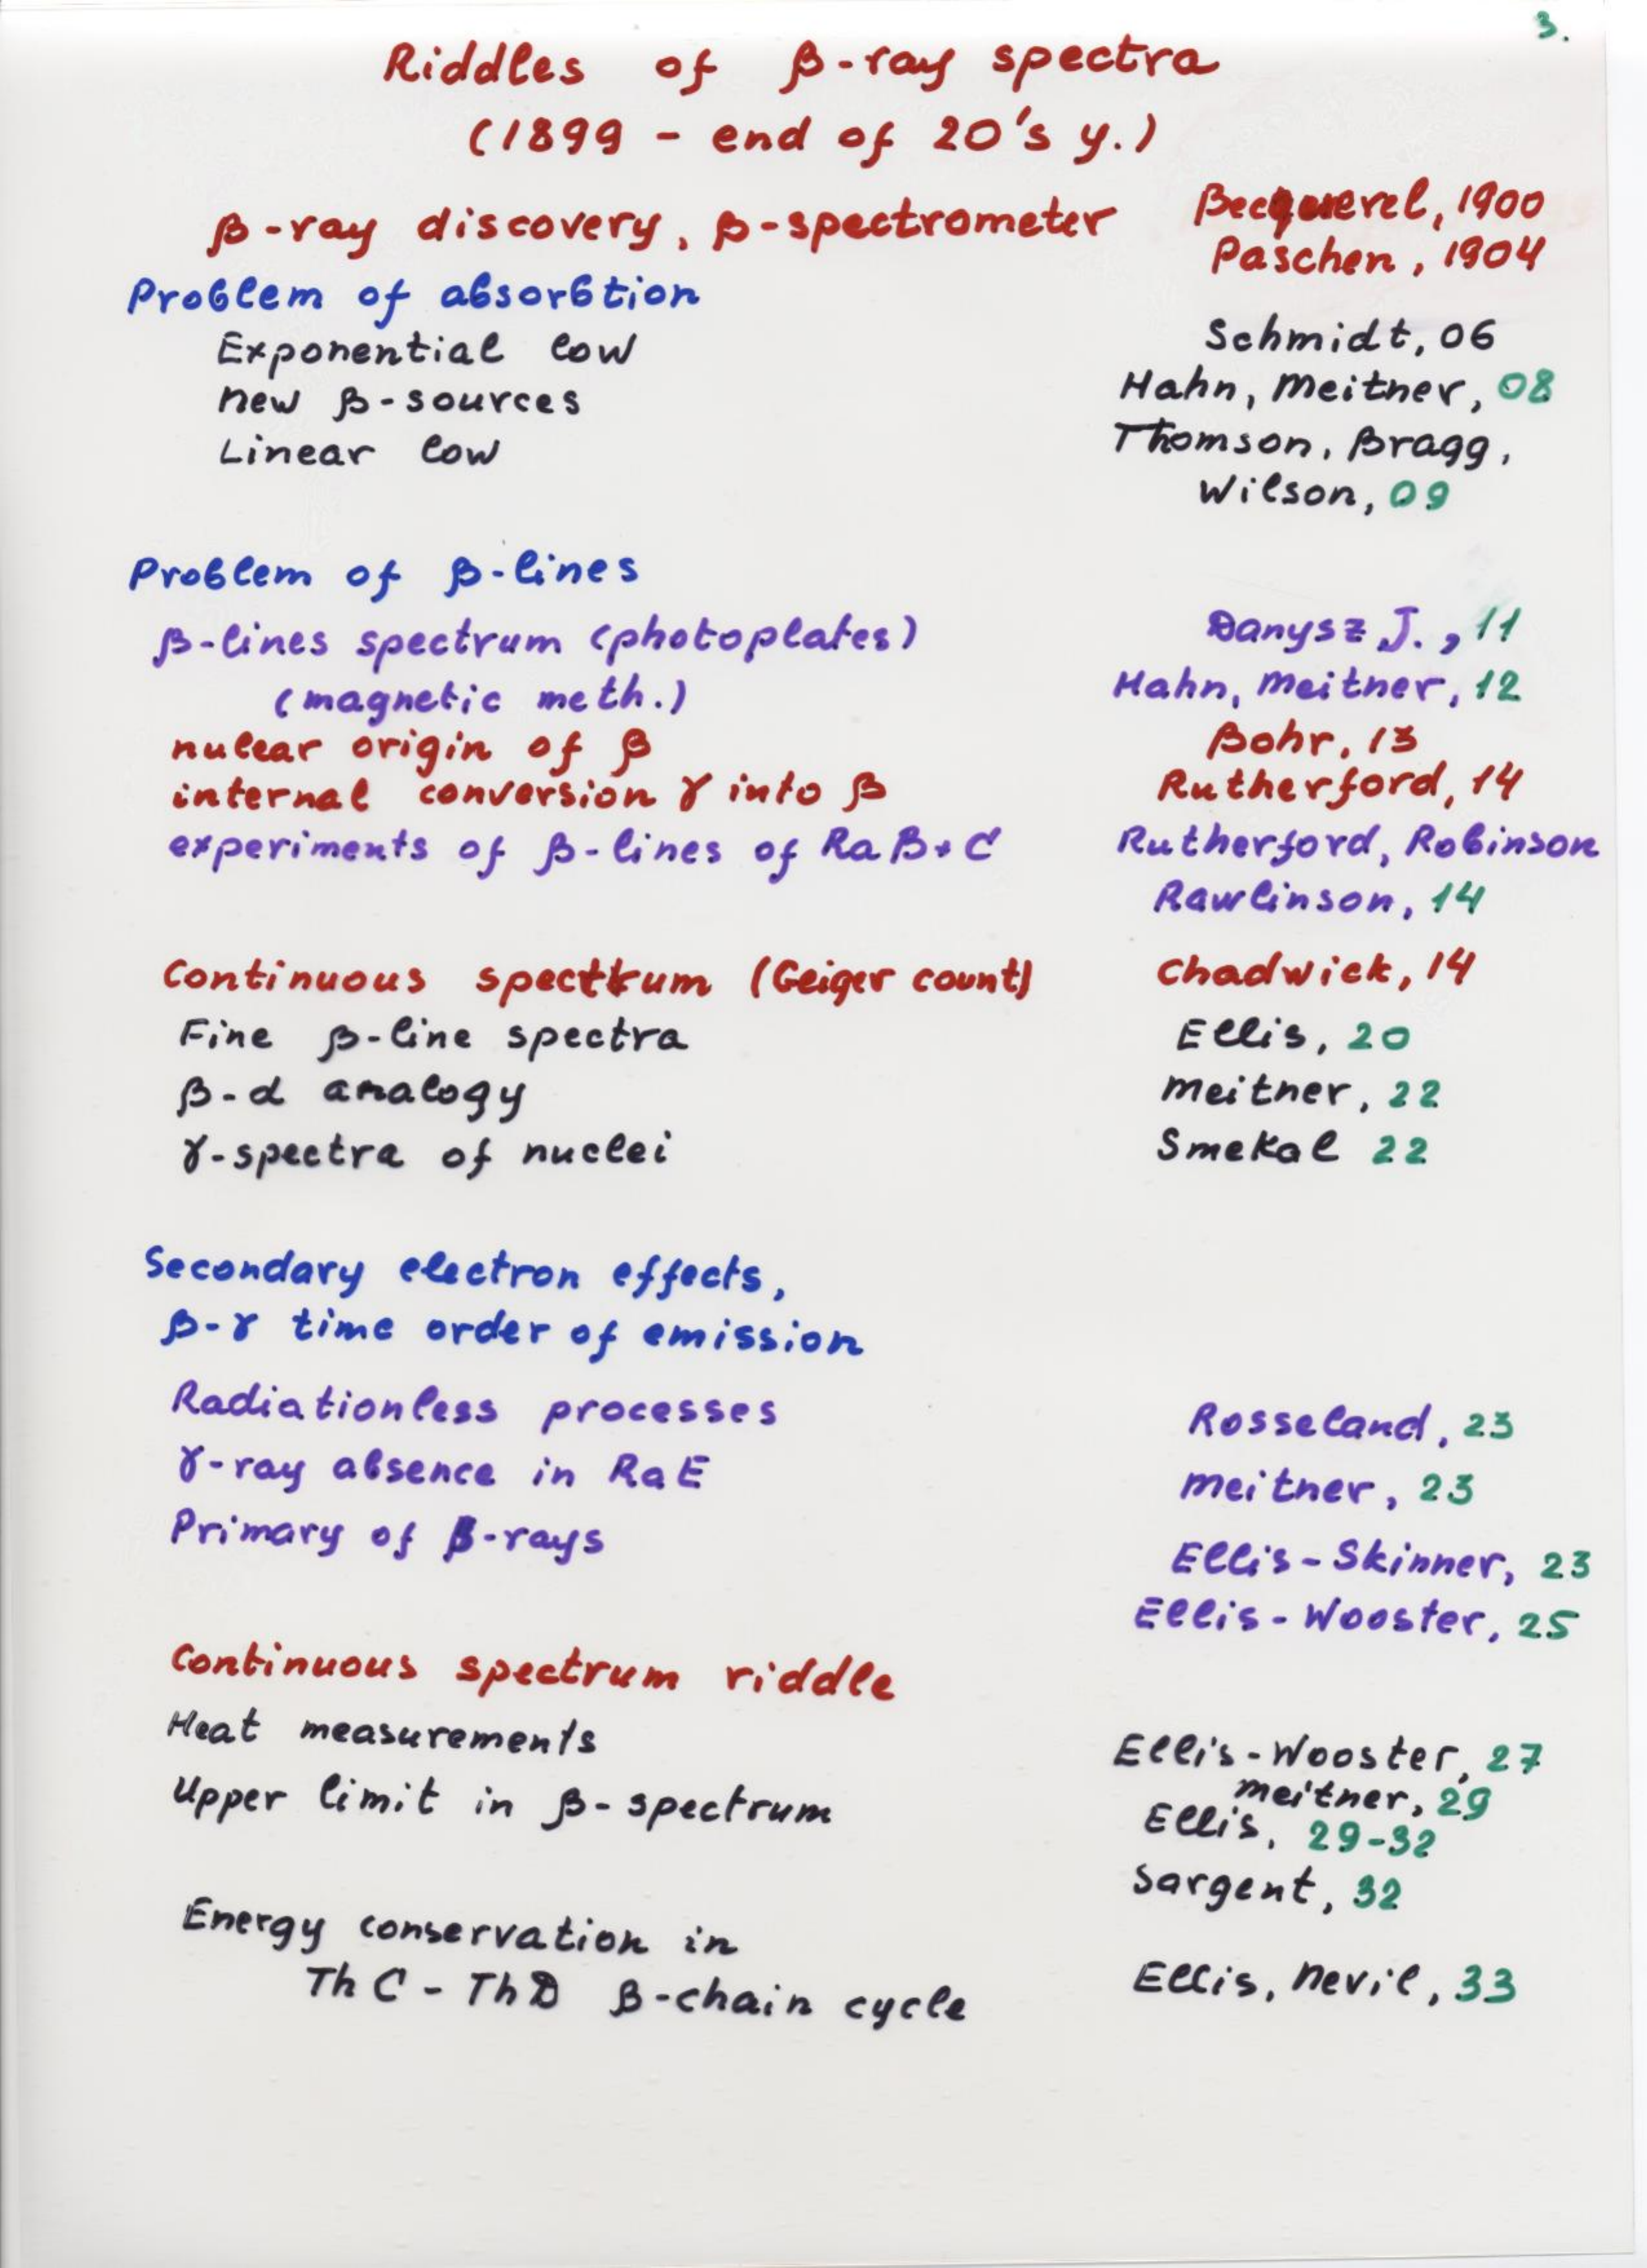 3.
Riddles of β-ray spectra
(1899 - end of 20's y.)
β-ray discovery, β-spectrometer Becquerel, 1900
Paschen, 1904
Problem of absorbtion
Exponential low Schmidt, 06
new β-sources Hahn, Meitner, 08
Linear low Thomson, Bragg,
Wilson, 09
Problem of β-lines
β-lines spectrum (photoplates) Danysz J., 11
(magnetic meth.) Hahn, Meitner, 12
nulear origin of β Bohr, 13
internal conversion γ into β Rutherford, 14
experiments of β-lines of Ra B+C Rutherford, Robinson
Rawlinson, 14
Continuous specttrum (Geiger count) Chadwick, 14
Fine β-line spectra Ellis, 20
β-α analogy Meitner, 22
γ-spectra of nuclei Smekal 22
Secondary electron effects,
β-γ time order of emission
Radiationless processes Rosseland, 23
γ-ray absence in RaE Meitner, 23
Primary of β-rays Ellis-Skinner, 23
Ellis-Wooster, 25
Continuous spectrum riddle
Heat measurements Ellis-Wooster, 27
Meitner, 29
Upper limit in β-spectrum Ellis, 29-32
Sargent, 32
Energy conservation in
Th C - Th D β-chain cycle Ellis, Nevil, 33